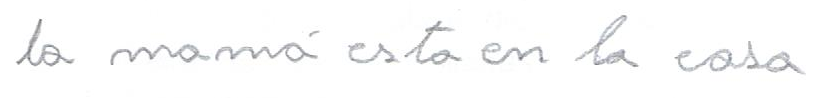 la mamá esta en la casa